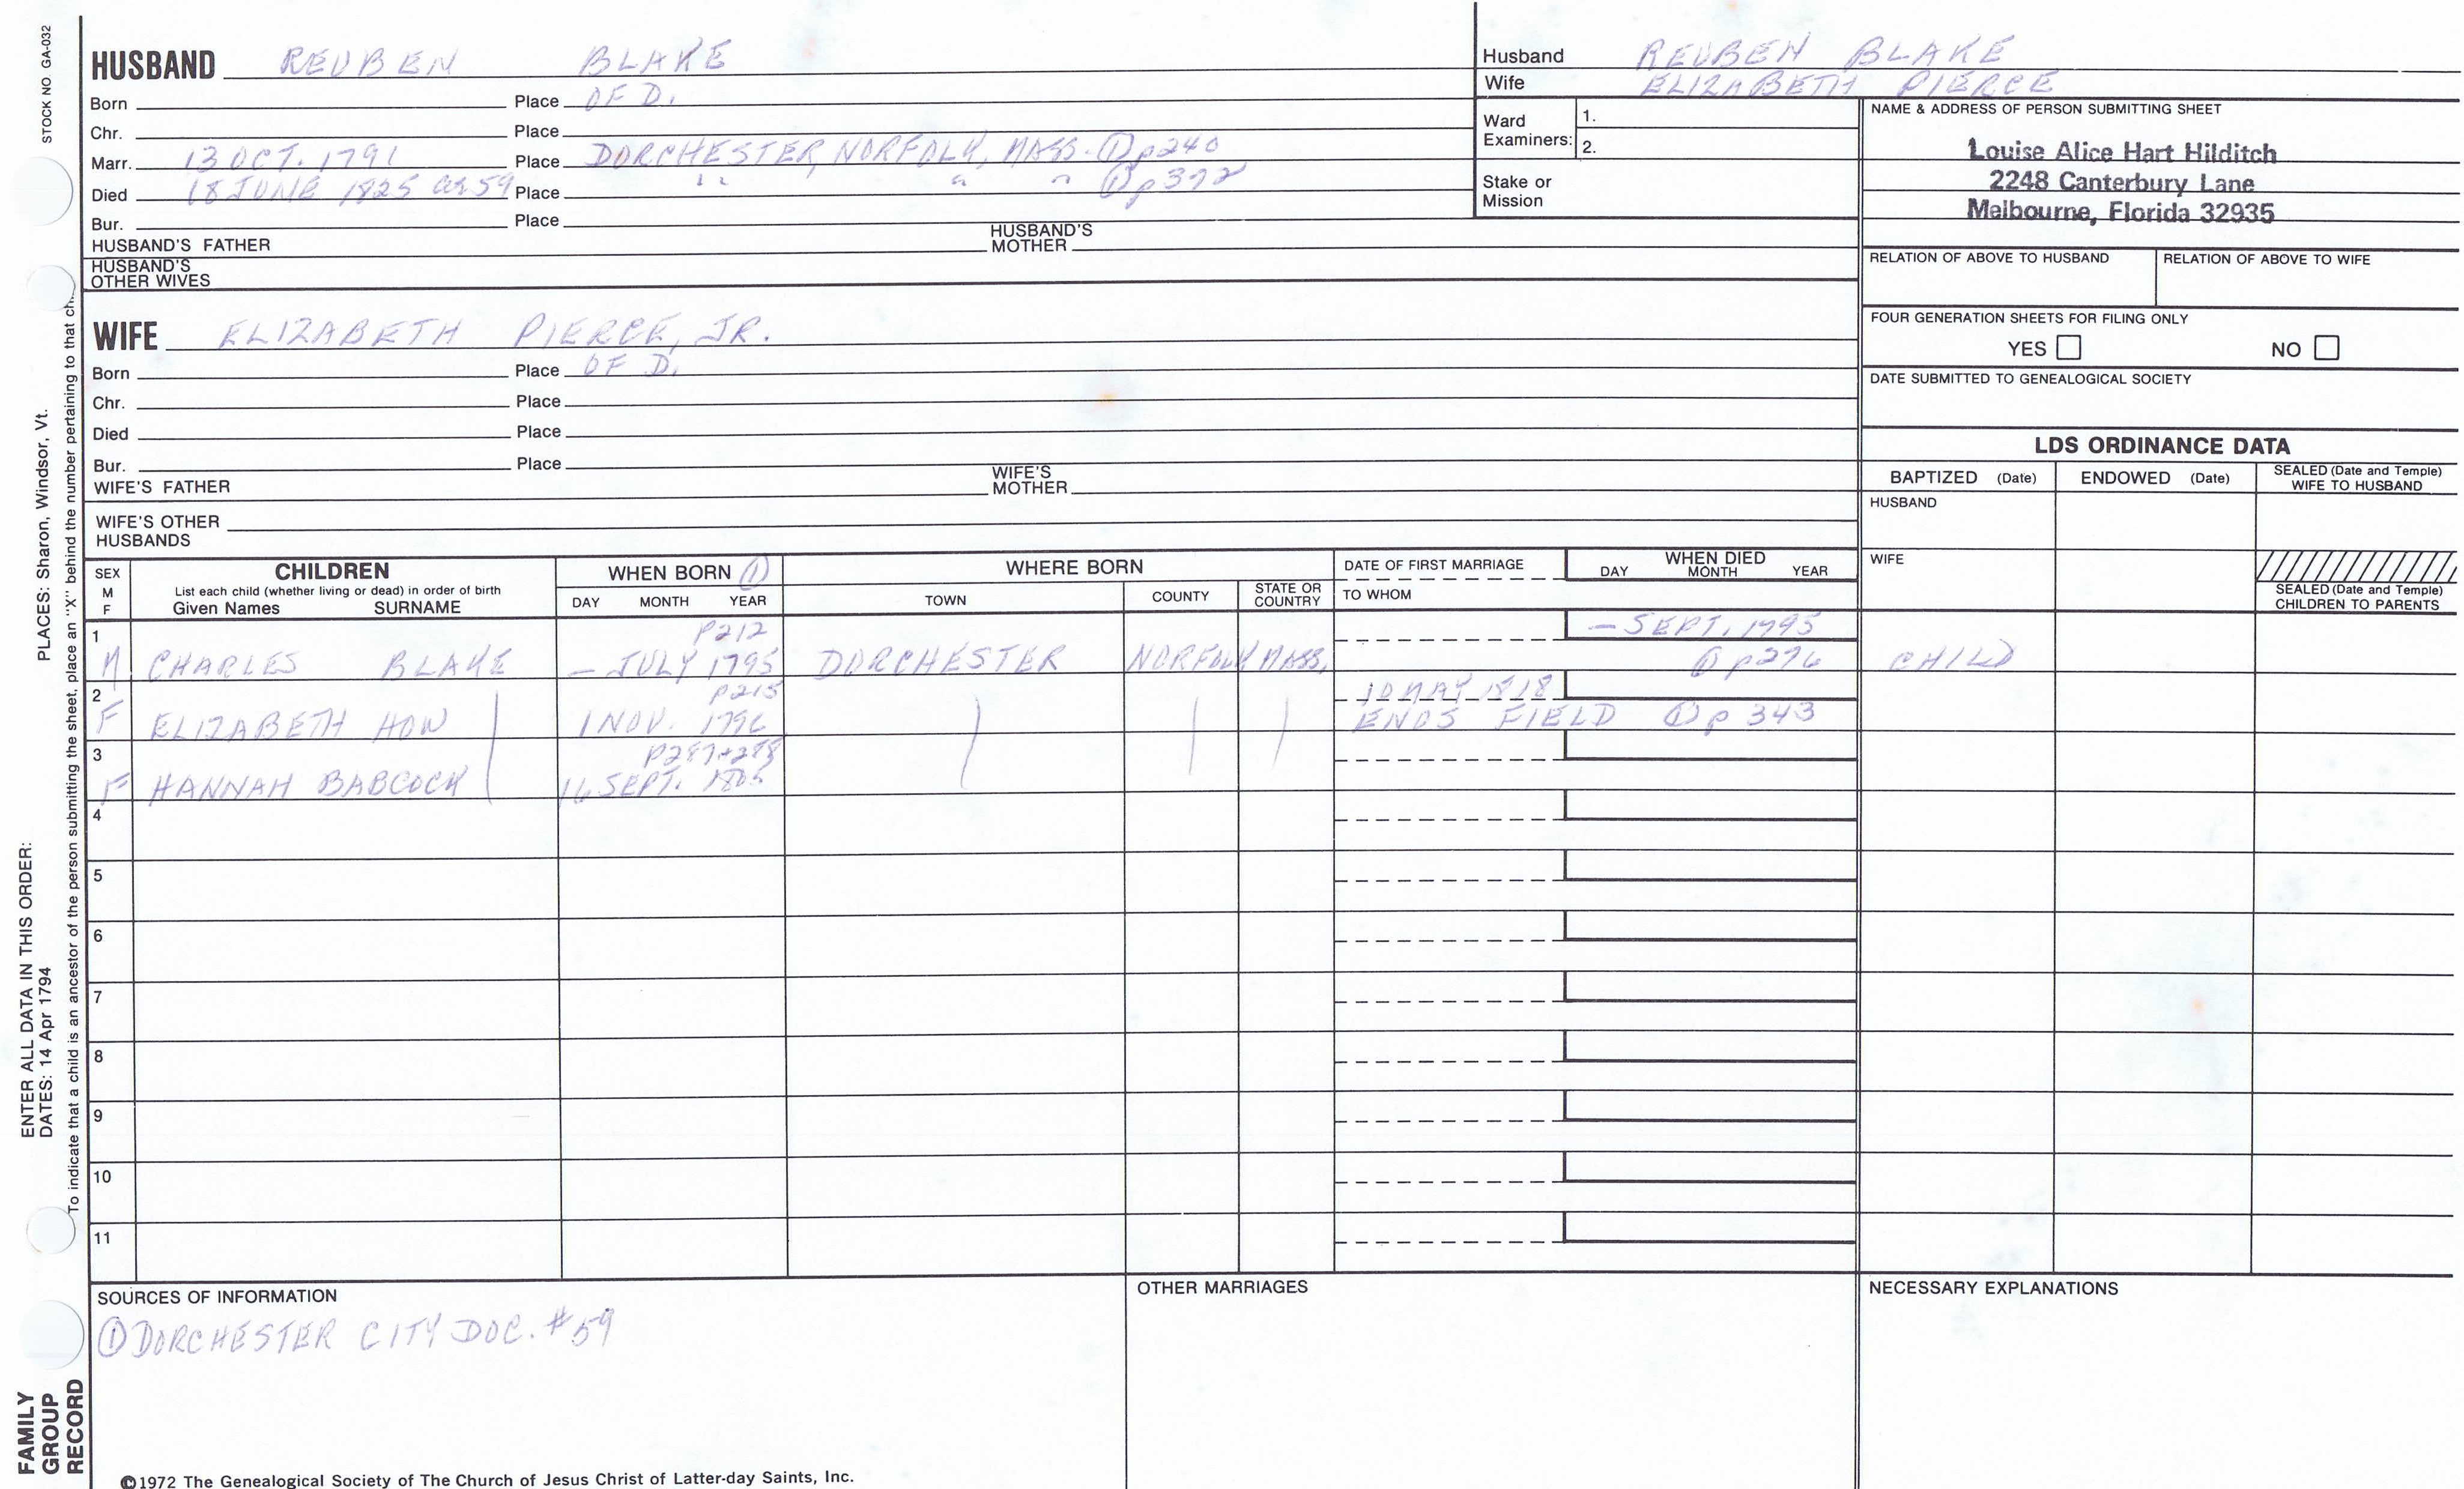 STOCK NO. GA-032
PLACES: Sharon, Windsor, Vt.
ENTER ALL DATA IN THIS ORDER:
DATES: 14 Apr 1794
To indicate that a child is an ancestor of the person submitting the sheet, place an "X" behind the number pertaining to that ch
FAMILY
GROUP
RECORD
HUSBAND REUBEN BLAKE
Born Place OF D.
Chr. Place
Marr. 13 OCT. 1791 Place DORCHESTER, NORFOLK, MASS. ① p240
Died 18 JUNE 1825 ae 59 Place " " " ① p372
Bur. Place
HUSBAND'S FATHER HUSBAND'S MOTHER
HUSBAND'S
OTHER WIVES
Husband REUBEN BLAKE
Wife ELIZABETH PIERCE
Ward
Examiners:
1.
2.
Stake or
Mission
NAME & ADDRESS OF PERSON SUBMITTING SHEET
Louise Alice Hart Hilditch
2248 Canterbury Lane
Melbourne, Florida 32935
RELATION OF ABOVE TO HUSBAND RELATION OF ABOVE TO WIFE
FOUR GENERATION SHEETS FOR FILING ONLY
YES NO
DATE SUBMITTED TO GENEALOGICAL SOCIETY
WIFE ELIZABETH PIERCE, JR.
Born Place OF D.
Chr. Place
Died Place
Bur. Place
WIFE'S FATHER WIFE'S MOTHER
WIFE'S OTHER
HUSBANDS
LDS ORDINANCE DATA
BAPTIZED (Date) ENDOWED (Date) SEALED (Date and Temple) WIFE TO HUSBAND
HUSBAND
WIFE
SEALED (Date and Temple)
CHILDREN TO PARENTS
SEX
M
F
CHILDREN
List each child (whether living or dead) in order of birth
Given Names SURNAME
WHEN BORN ①
DAY MONTH YEAR
WHERE BORN
TOWN COUNTY STATE OR COUNTRY
DATE OF FIRST MARRIAGE
TO WHOM
WHEN DIED
DAY MONTH YEAR
1 P212 – SEPT. 1795
M CHARLES BLAKE – JULY 1795 DORCHESTER NORFOLK MASS. ① p276 CHILD
2 P215 10 MAY 1818
F ELIZABETH HOW 1 NOV. 1796 ENOS FIELD ① p 343
3 P287+288
F HANNAH BABCOCK 16 SEPT.
4
5
6
7
8
9
10
11
SOURCES OF INFORMATION
① DORCHESTER CITY DOC. #59
OTHER MARRIAGES
NECESSARY EXPLANATIONS
©1972 The Genealogical Society of The Church of Jesus Christ of Latter-day Saints, Inc.